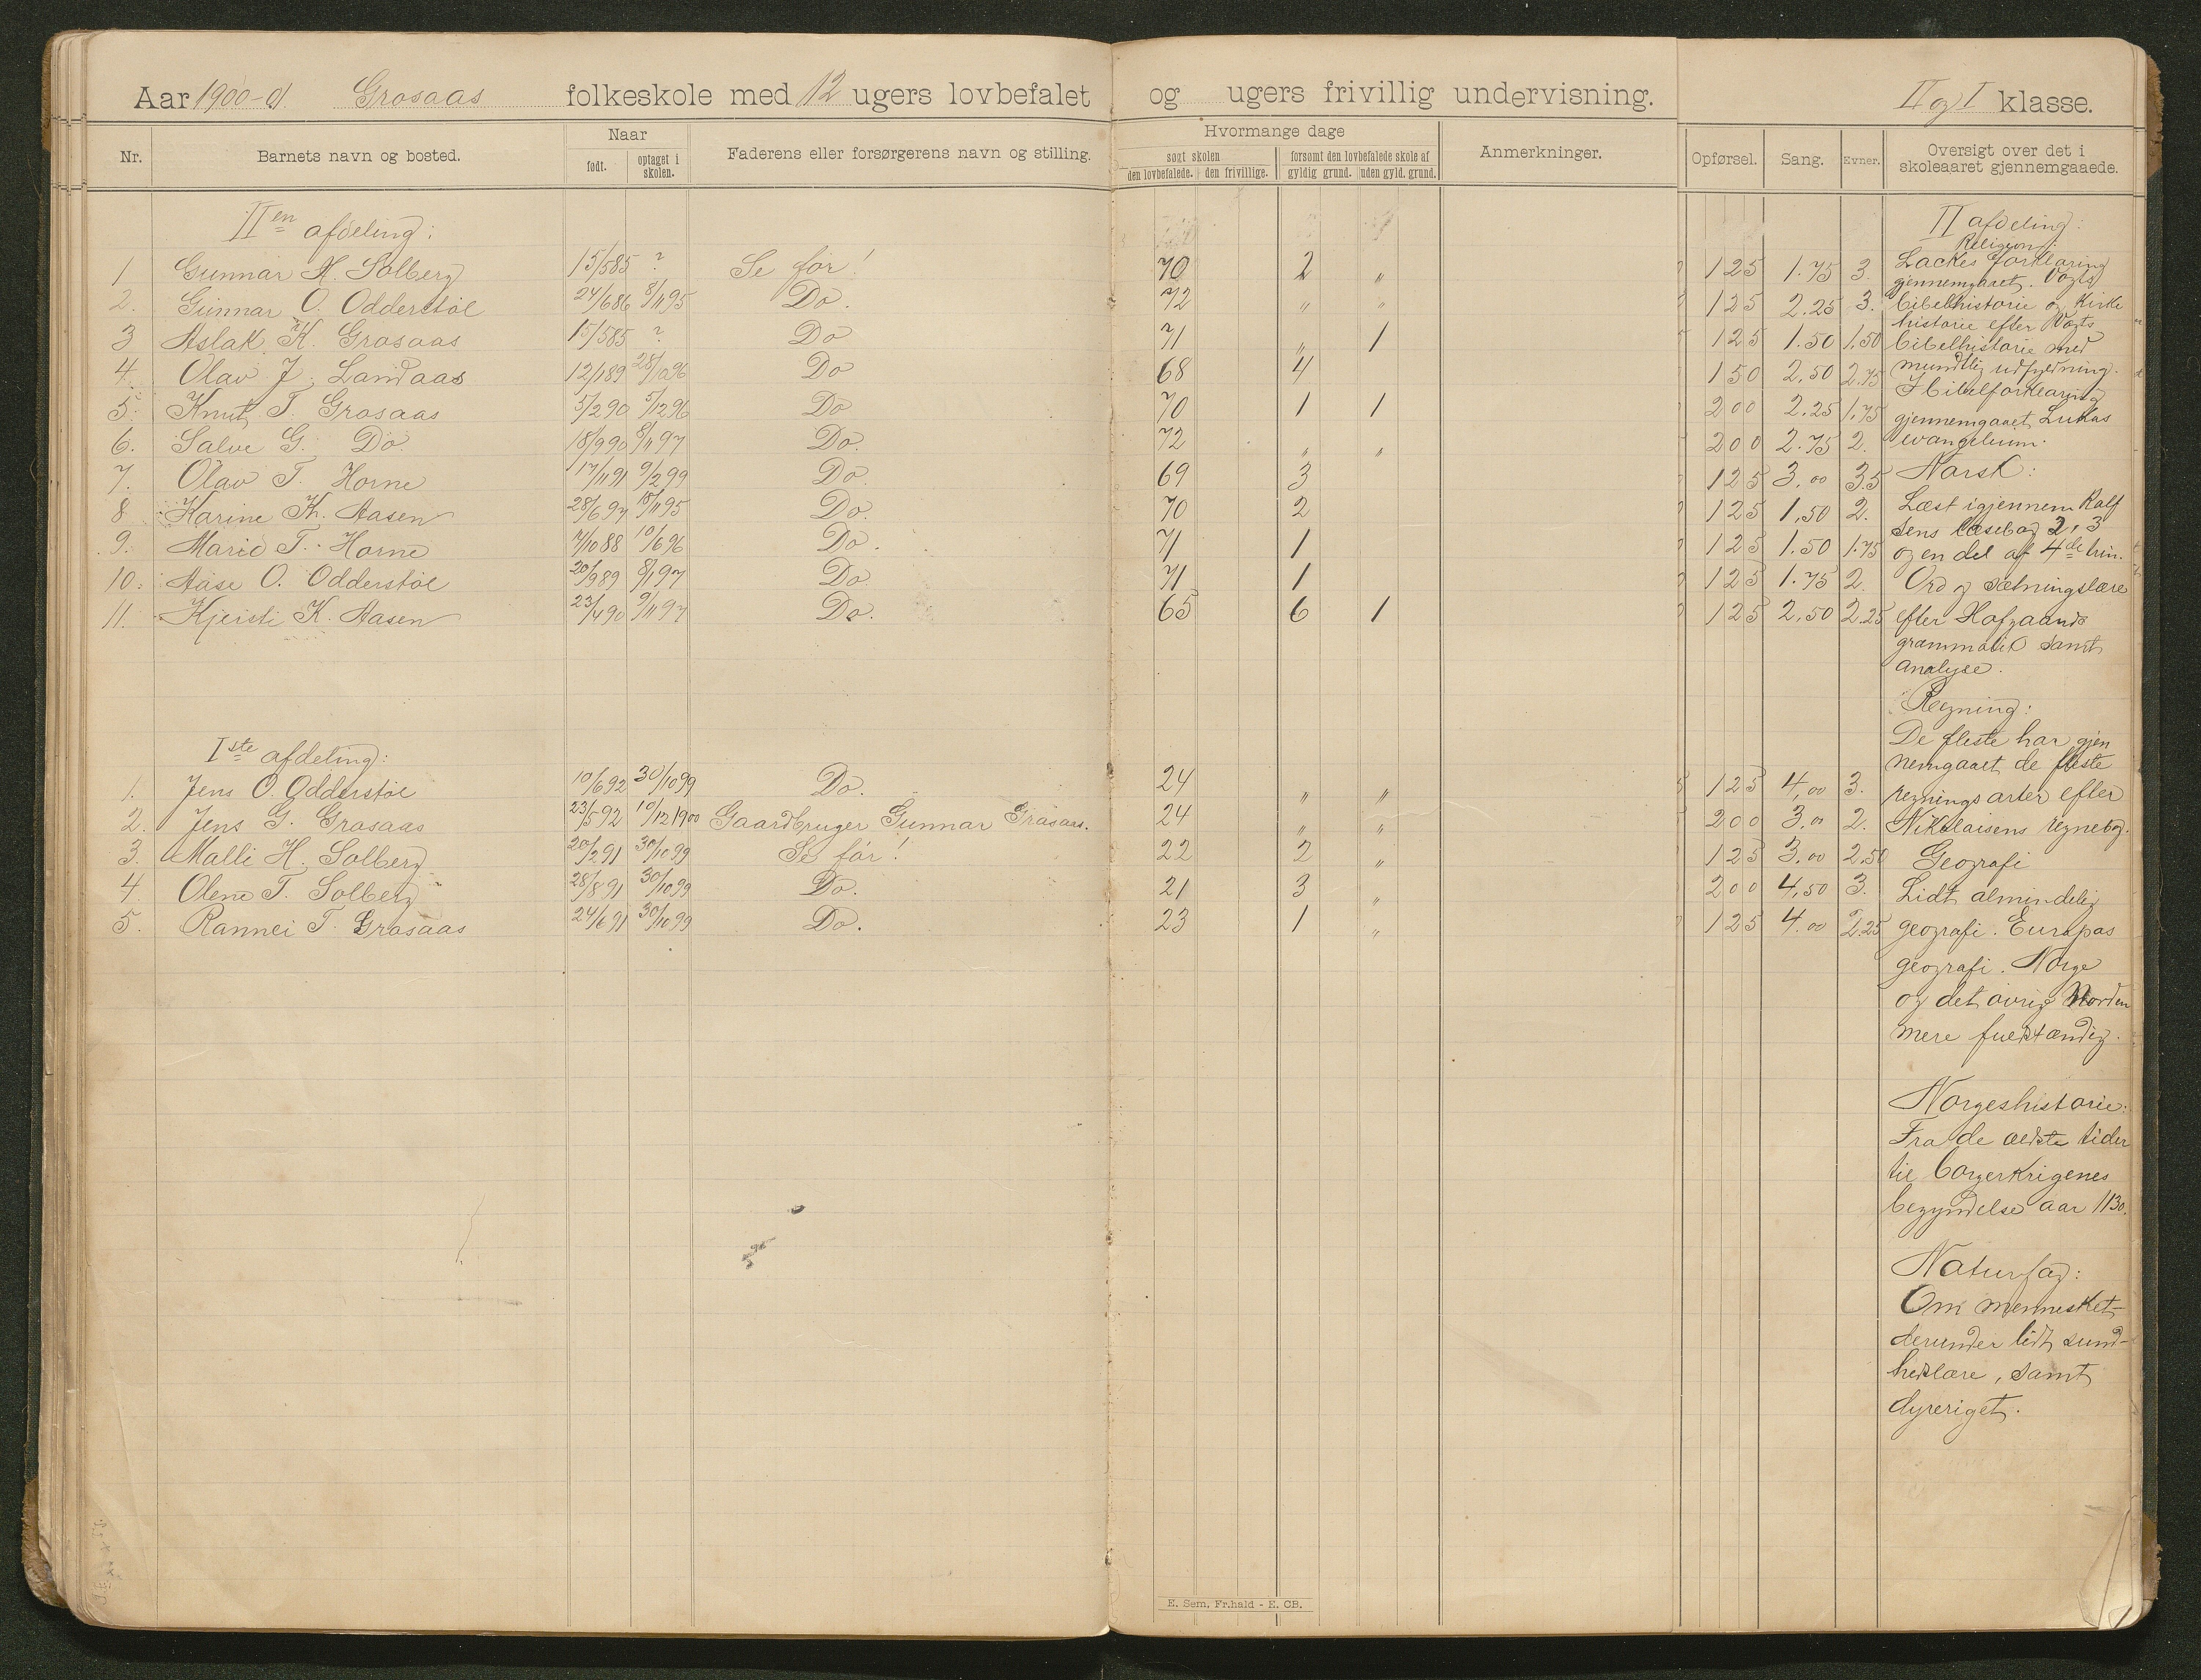 Aar 1900-01 Grosaas folkeskole med 12 ugers lovbefalet og ugers frivillig undervisning. II og I klasse.
Nr. Barnets navn og bosted. Naar født. optaget i skolen. Faderens eller forsørgerens navn og stilling. Hvormange dage søgt skolen den lovbefalede. den frivillige. forsømt den lovbefalede skole af gyldig grund. uden gyld. grund. Anmerkninger. Opførsel. Sang. Evner. Oversigt over det i skoleaaret gjennemgaaede.
IIen afdeling:
1 Gunnar H. Solberg 15/5 85 ? Se før! 70 2 " 125 1.75 3.
2. Gunnar O. Odderstøl 24/6 86 8/11 95 Do. 72 " " 125 2.25 3.
3 Aslak K. Grosaas 15/5 85 ? Do 71 " 1 125 1.50 1.50
4. Olav J. Landaas 12/1 89 28/10 96 Do 68 4 150 2.50 2.75
5. Knut T. Grosaas 5/2 90 5/12 96 Do 70 1 1 200 2.25 1.75
6. Salve G. Do. 18/9 90 8/11 97 Do. 72 " " 200 2.75 2.
7. Olav T. Horne 17/11 91 9/2 99 Do. 69 3 125 3.00 3.5
8 Karine Kn. Aasen 28/6 97 15/11 95 Do. 70 2 125 1.50 2.
9. Marie T. Horne 7/10 88 10/6 96 Do. 71 1 125 1.50 1.75
10. Aase O. Odderstøl 20/9 89 8/1 97 Do. 71 1 125 1.75 2.
11. Kjersti K. Aasen 23/4 90 9/11 97 Do. 65 6 1 125 2.50 2.25
Iste afdeling:
1. Jens O. Odderstøl 10/6 92 30/10 99 Do. 24 " " 125 4,00 3.
2. Jens G. Grosaas 23/5 92 10/12 1900 Gaardbruger Gunnar Grosaas. 24 " " 200 3.00 2.
3. Malli H. Solberg 20/2 91 30/10 99 Se før! 22 2 " 125 3.00 2.50
4 Olene T. Solberg 28/8 91 30/10 99 Do. 21 3 " 200 4,50 3.
5. Rannei T. Grosaas 24/6 91 30/10 99 Do. 23 1 " 125 4.00 2.25
II afdeling:
Religion:
Lockes forklaring
gjennemgaaet. Vogts
bibelhistorie og Kirke
historie efter Vogts
bibelhistorie med
mundtlig udfyldning.
I bibelforklaring
gjennemgaaet Lukas
evangelium.
Norsk:
Læst igjennem Rolf
sens læsebog 2, 3
og en del af 4de trin.
Ord og sætningslære
efter Hofgaards
grammatik samt
analyse.
Regning:
De fleste har gjen
nemgaaet de fleste
regningsarter efter
Nikolaisens regnebog.
Geografi
Lidt almindelig
geografi. Europas
geografi. Norge
og det øvrige Norden
mere fuldstændig.
Norgeshistorie:
Fra de ældste tider
til borgerkrigenes
begyndelse aar 1130.
Naturfag:
Om mennesket
derunder lidt sund-
hedslære, samt
dyreriget.
E. Sem, Fr.hald - E. CB.